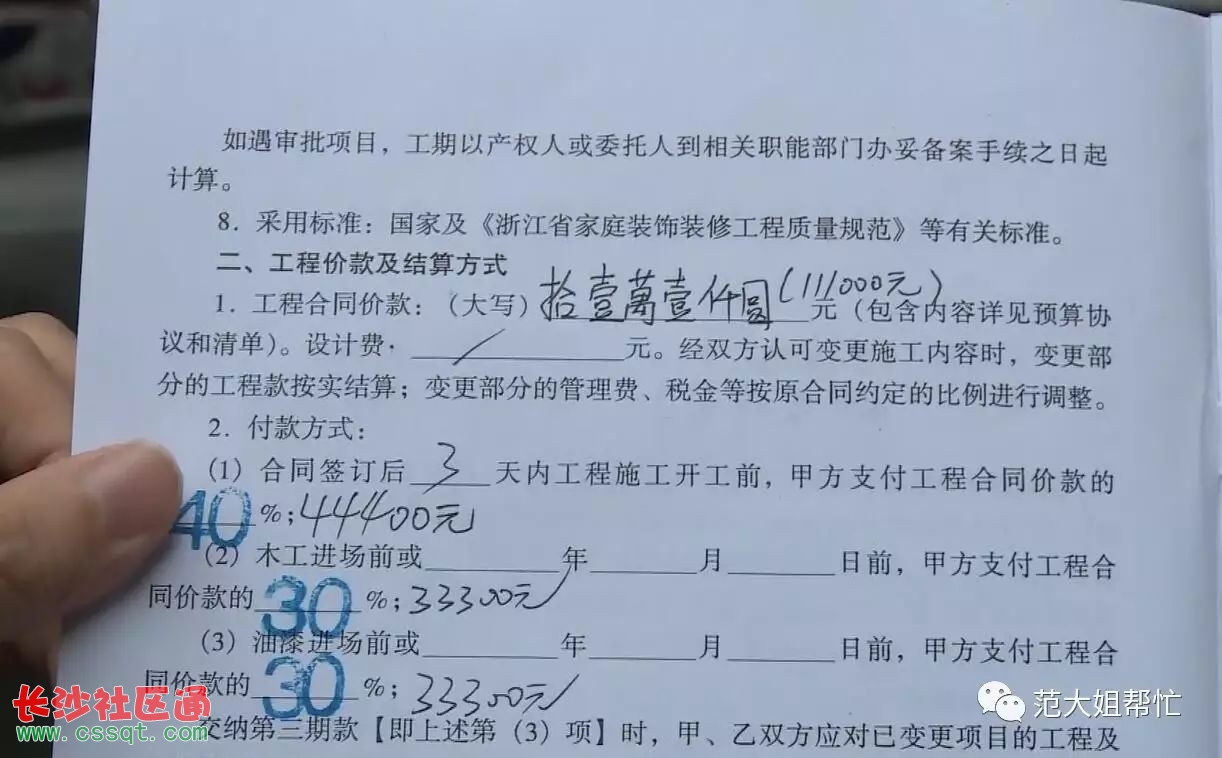 如遇审批项目，工期以产权人或委托人到相关职能部门办妥备案手续之日起
计算。
8．采用标准：国家及《浙江省家庭装饰装修工程质量规范》等有关标准。
二、工程价款及结算方式
1．工程合同价款：（大写）拾壹萬壹仟圆(111000元)元（包含内容详见预算协
议和清单）。设计费·／元。经双方认可变更施工内容时，变更部
分的工程款按实结算；变更部分的管理费、税金等按原合同约定的比例进行调整。
2．付款方式：
（1）合同签订后3天内工程施工开工前，甲方支付工程合同价款的
40%；44400元
（2）木工进场前或______年______月______日前，甲方支付工程合
同价款的30%；33300元
（3）油漆进场前或______年______月______日前，甲方支付工程合
同价款的30%；33300元
交纳第三期款【即上述第（3）项】时，甲、乙双方应对已变更项目的工程及
长沙社区通
www.cssqt.com
范大姐帮忙